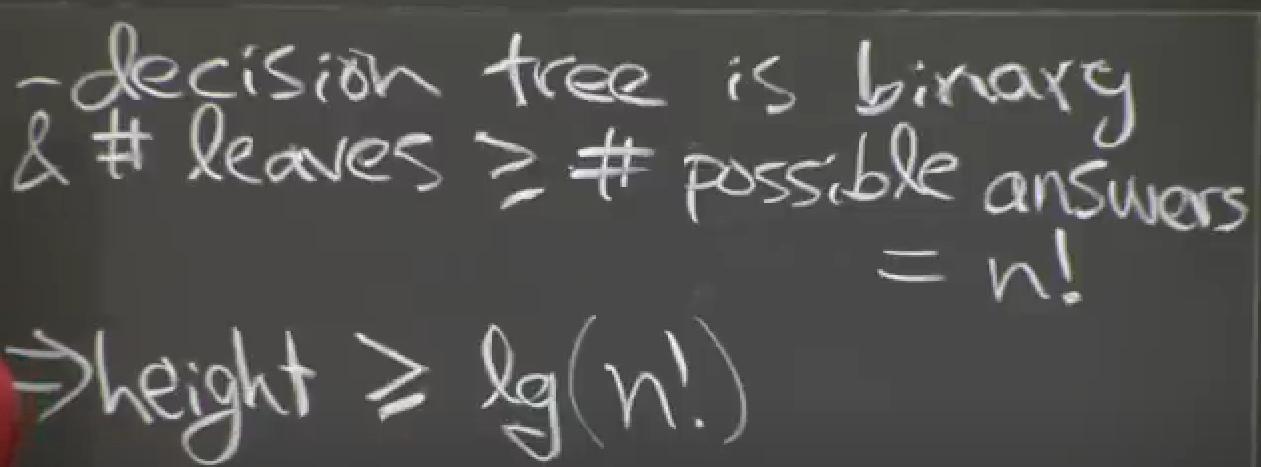 - decision tree is binary
& # leaves ≥ # possible answers
= n!
⇒ height ≥ lg(n!)